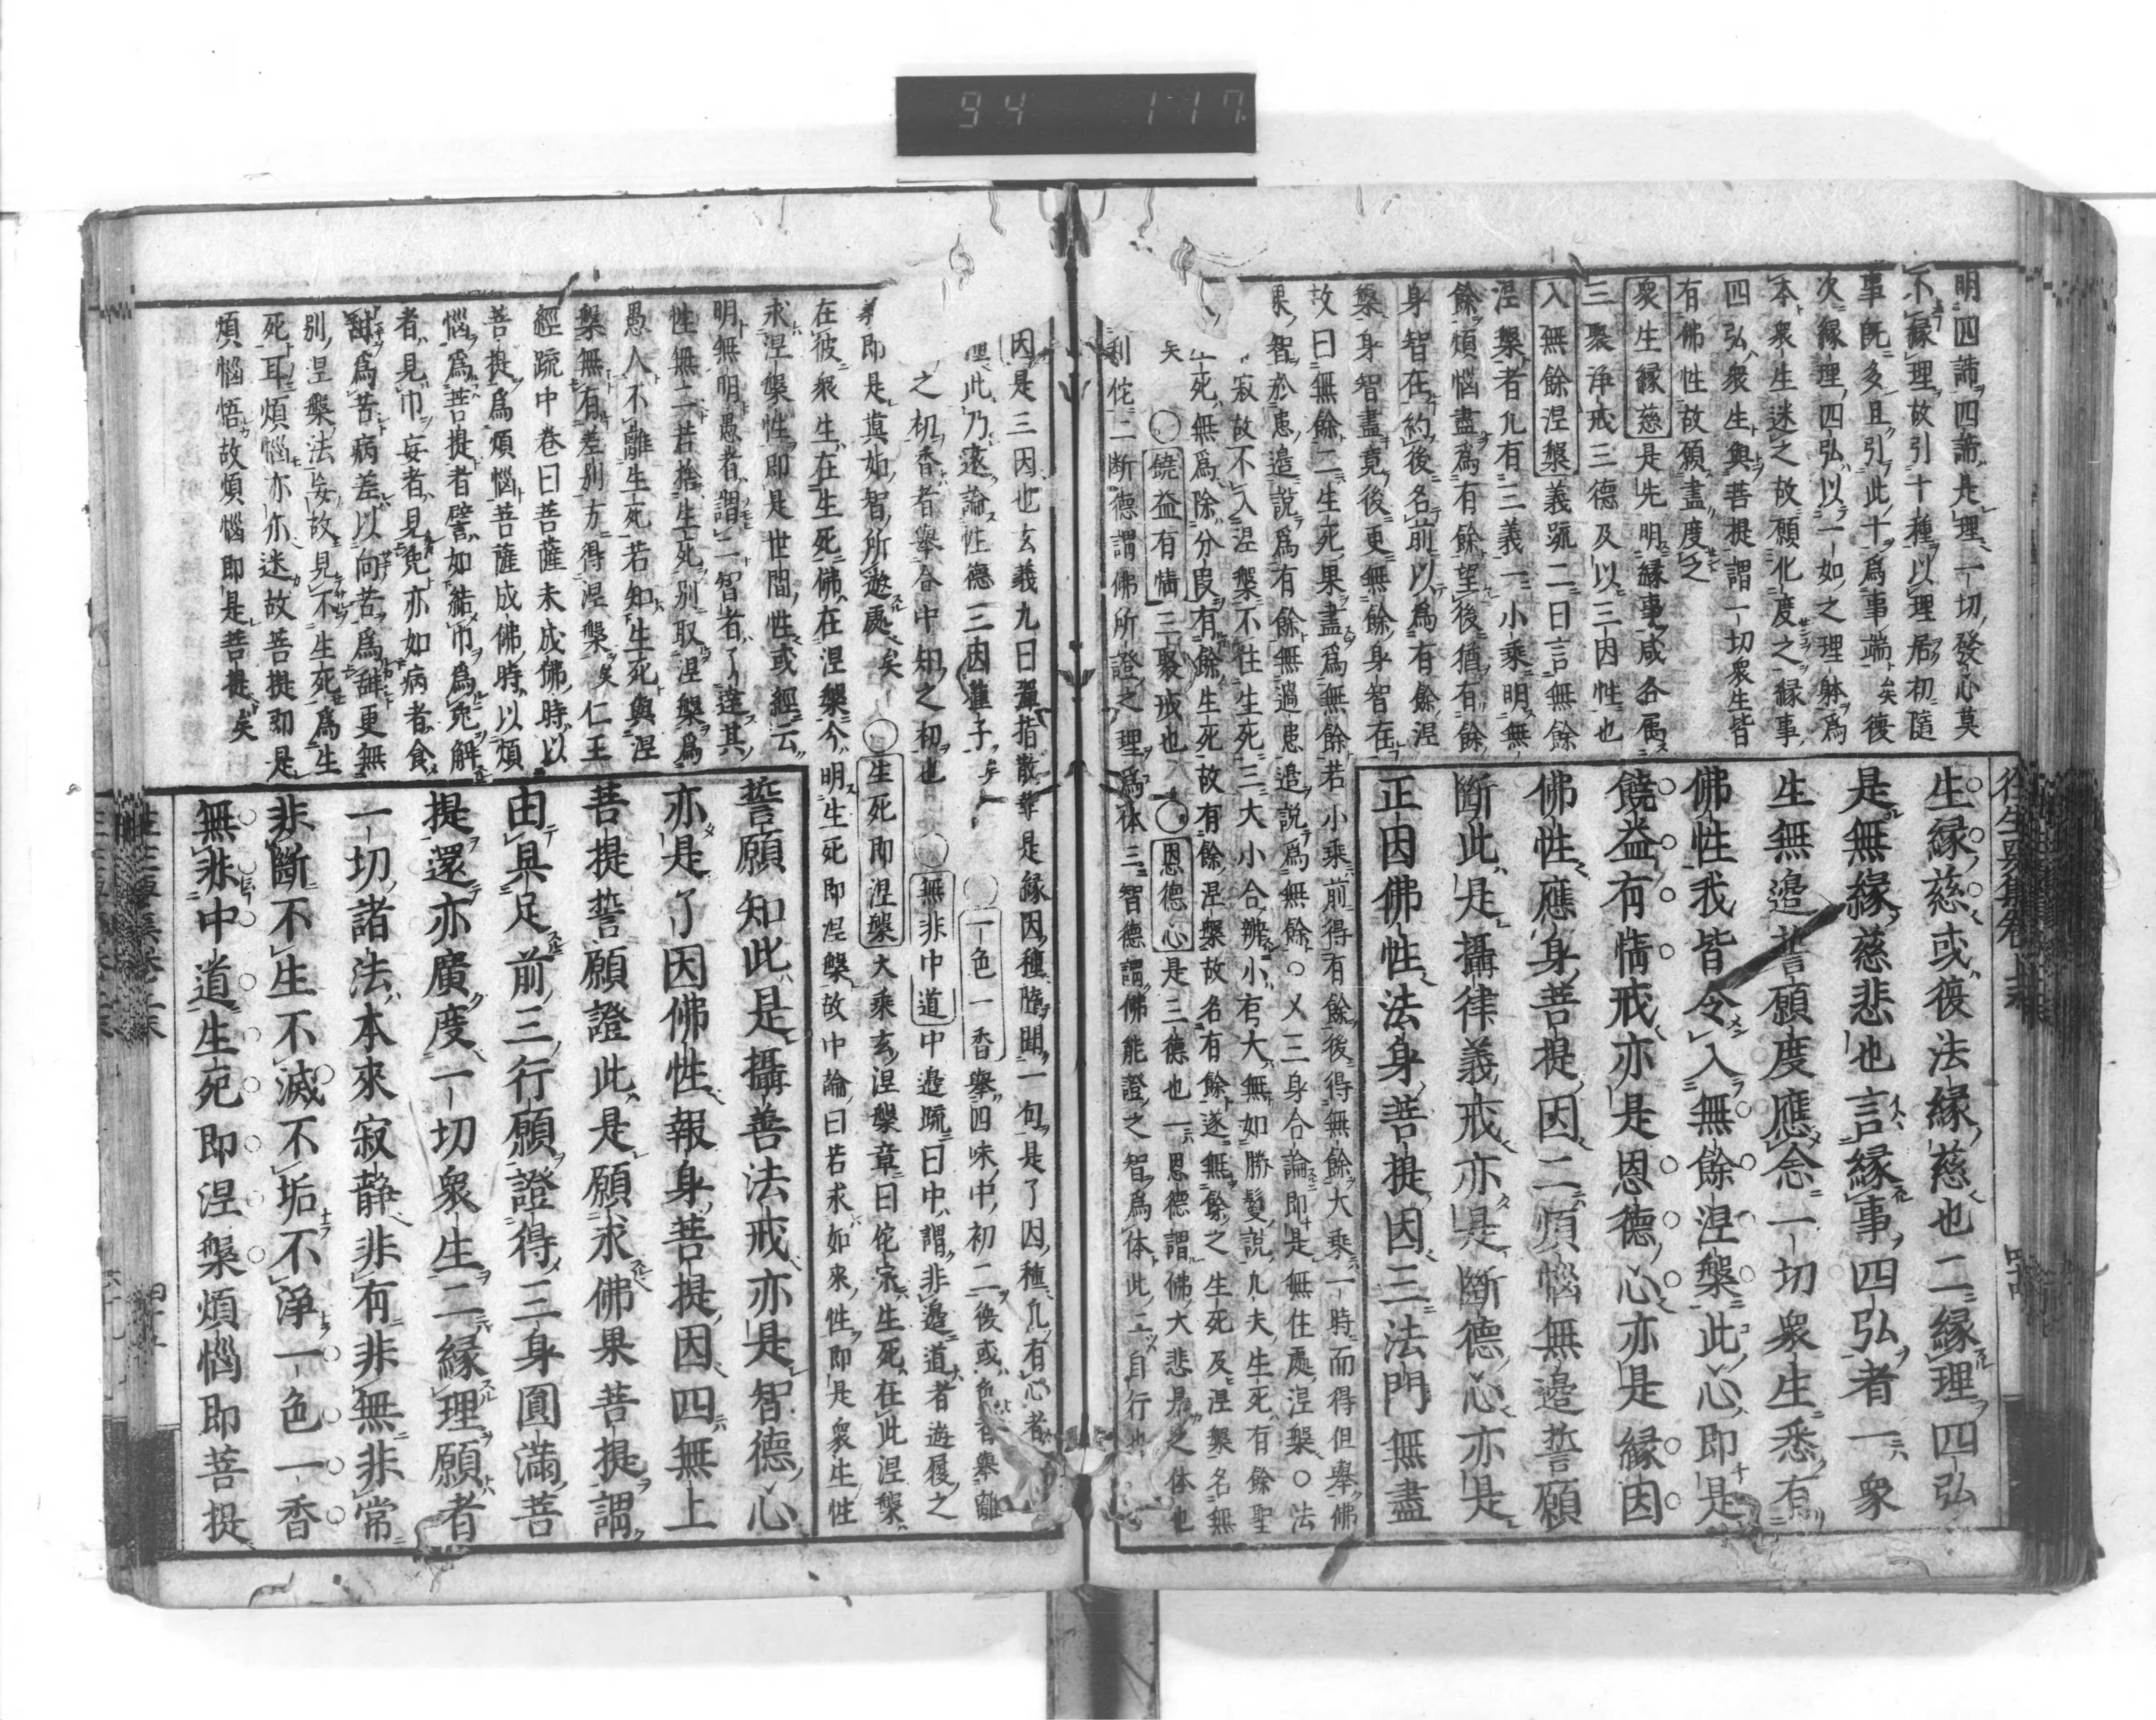 94 117
往生要集卷上末
生緣慈或復法緣慈也二緣理四弘
是無緣慈悲也言緣事四弘者一衆
生無邊誓願度應念一切衆生悉有
佛性我皆令入無餘涅槃此心即是
饒益有情戒亦是恩德心亦是緣因
佛性應身菩提因二煩惱無邊誓願
斷此是攝律義戒亦是斷德心亦是
正因佛性法身菩提因三法門無盡
明四諦四諦是理一切發心莫
不緣理故引十種以理居初隨
事既多且引此十爲事端矣後
次緣理四弘以一如之理躰爲
本衆生迷之故願化度之緣事
四弘衆生與菩提謂一切衆生皆
有佛性故願盡度之
衆生緣慈是先明緣事咸各屬
三聚淨戒三德及以三因性也
入無餘涅槃義疏二曰言無餘
涅槃者凡有三義一小乘明無
餘煩惱盡爲有餘望後猶有餘
身智在約後名前以爲有餘涅
槃身智盡竟後更無餘身智在
故曰無餘二生死果盡爲無餘若小乘前得有餘後得無餘大乘一時而得但舉佛
果智於患邊說爲有餘無過患邊說爲無餘○又三身合論即是無住處涅槃○法
寂故不入涅槃不住生死三大小合辨小有大無如勝鬘說凡夫生死有餘聖
死無爲除分段有餘生死故有餘涅槃故名有餘遂無餘之生死及涅槃名無
矣○饒益有情三聚戒也○恩德心是三德也一恩德謂佛大悲是之体也
利佗二断德謂佛所證之理爲体三智德謂佛能證之智爲体此二自行也
因是三因也玄義九曰彈指散華是緣因種隨聞一句是了因種凡有心者
此乃遠論性德三因種子矣○一色一香舉四味中初二後或色者舉離
之初香者舉合中知之初也○無非中道中邊疏曰中謂非邊道者遊履之
義即是眞如智所遊處矣○生死即涅槃大乘玄涅槃章曰佗宗生死在此涅槃
在彼衆生在生死佛在涅槃今明生死即涅槃故中論曰若求如來性即是衆生性
求涅槃性即是世間性或經云
明無明愚者謂二智者了達其
性無二若捨生死別取涅槃爲
愚人不離生死若知生死與涅
槃無有差別方得涅槃矣仁王
經疏中卷曰菩薩未成佛時以
菩提爲煩惱菩薩成佛時以煩
惱爲菩提者譬如結巾爲兎解
者見巾妄者見兎亦如病者食
甜爲苦病差以向苦爲甜更無
別涅槃法妄故見不生死爲生
死耳煩惱亦亦迷故菩提即是
煩惱悟故煩惱即是菩提矣
誓願知此是攝善法戒亦是智德心
亦是了因佛性報身菩提因四無上
菩提誓願證此是願求佛果菩提謂
由具足前三行願證得三身圓滿菩
提還亦廣度一切衆生二緣理願者
一切諸法本來寂静非有非無非常
非斷不生不滅不垢不淨一色一香
無非中道生死即涅槃煩惱即菩提